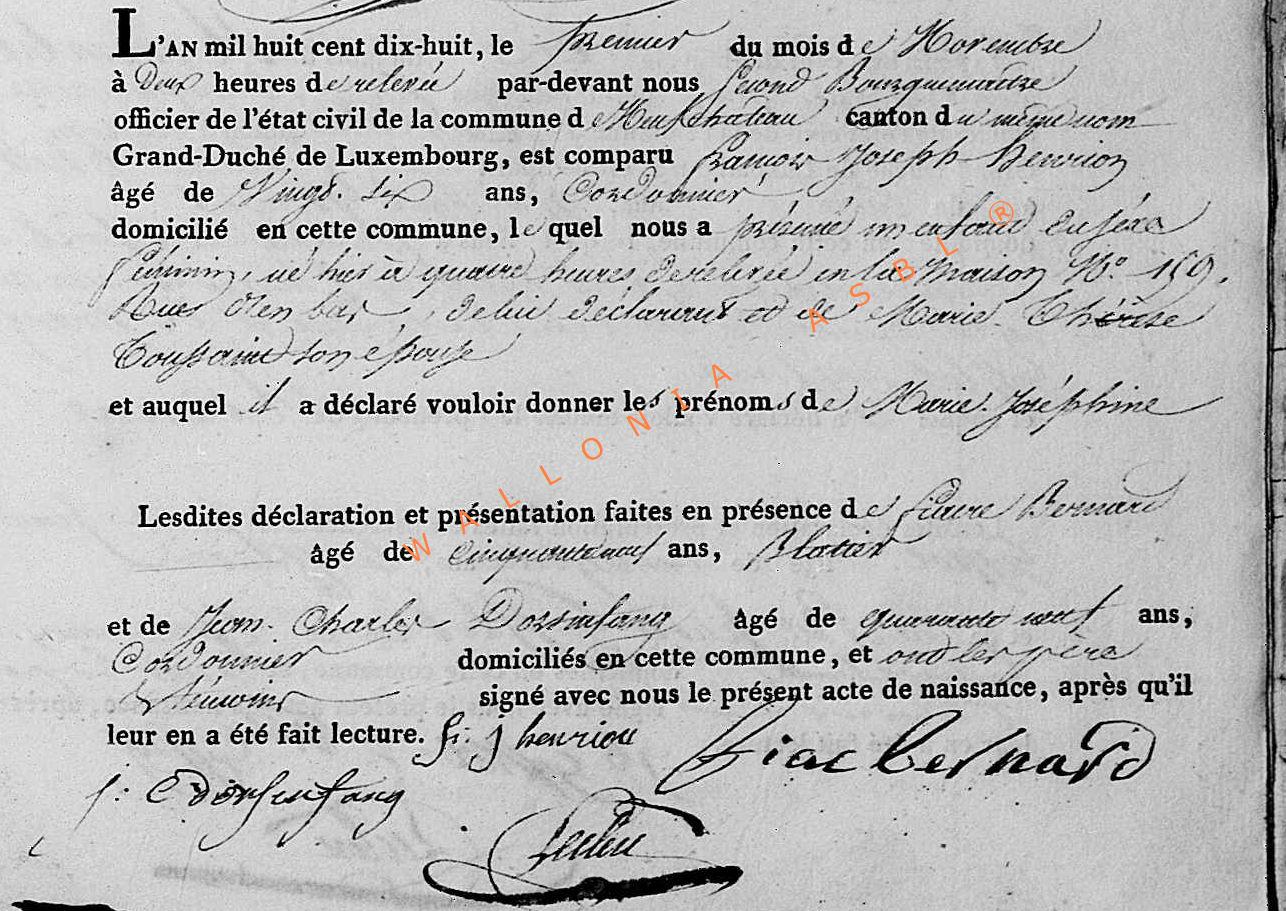 L'AN mil huit cent dix-huit, le premier du mois de Novembre
à Deux heures de relevée par-devant nous second Bourguemaitre
officier de l'état civil de la commune de Neufchateau canton du même nom
Grand-Duché de Luxembourg, est comparu François Joseph Henrion
âgé de Vingt. six ans, Cordonnier
domicilié en cette commune, lequel nous a présenté un enfant du séxe
féminin, né hier à quatre heures de relevée en la maison N.º 159.
Rue d'en bas, de lui déclarant et de Marie. Thérèse
Toussaint son épouse
et auquel il a déclaré vouloir donner les prénoms de Marie. Joséphine
Lesdites déclaration et présentation faites en présence de Pierre Bernard
âgé de Cinquante neuf ans, Blatier
et de Jean. Charles Dorsinfang âgé de quarante neuf ans,
Cordonnier domiciliés en cette commune, et ont les père
& témoins signé avec nous le présent acte de naissance, après qu'il
leur en a été fait lecture. fr. j henrion
bernard
j: C dorsenfang
WALLONIA ASBL ®